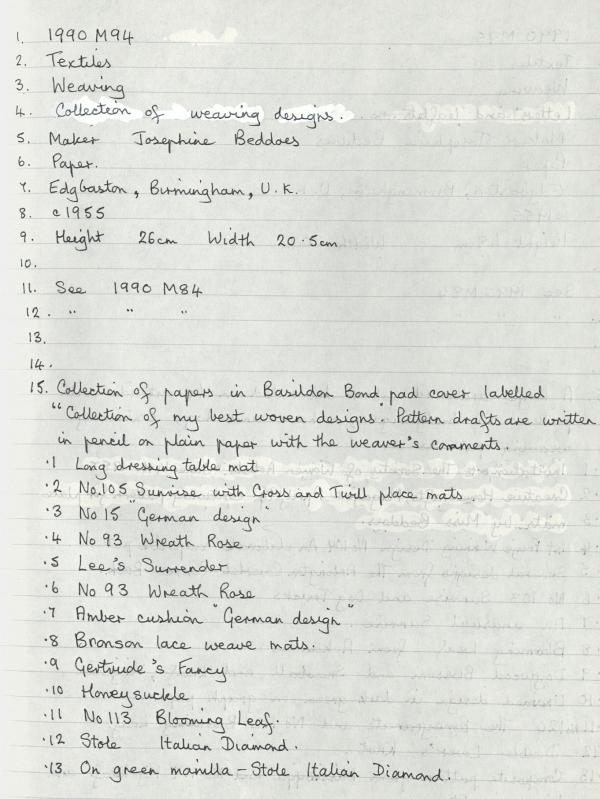 1. 1990 M94
2. Textiles
3. Weaving
4. Collection of weaving designs.
5. Maker Josephine Beddoes
6. Paper.
7. Edgbaston, Birmingham, U.K.
8. c1955
9. Height 26cm Width 20.5cm
10.
11. See 1990 M84
12. " " "
13.
14.
15. Collection of papers in Basildon Bond pad cover labelled
"Collection of my best woven designs". Pattern drafts are written
in pencil on plain paper with the weaver's comments.
.1 Long dressing table mat
.2 No.105 Sunrise with Cross and Twill place mats
.3 No 15 "German design"
.4 No 93 Wreath Rose
.5 Lee's Surrender
.6 No 93 Wreath Rose
.7 Amber cushion "German design"
.8 Bronson lace weave mats.
.9 Gertrude's Fancy
.10 Honeysuckle
.11 No 113 Blooming Leaf.
.12 Stole Italian Diamond.
.13. On green manilla - Stole Italian Diamond.